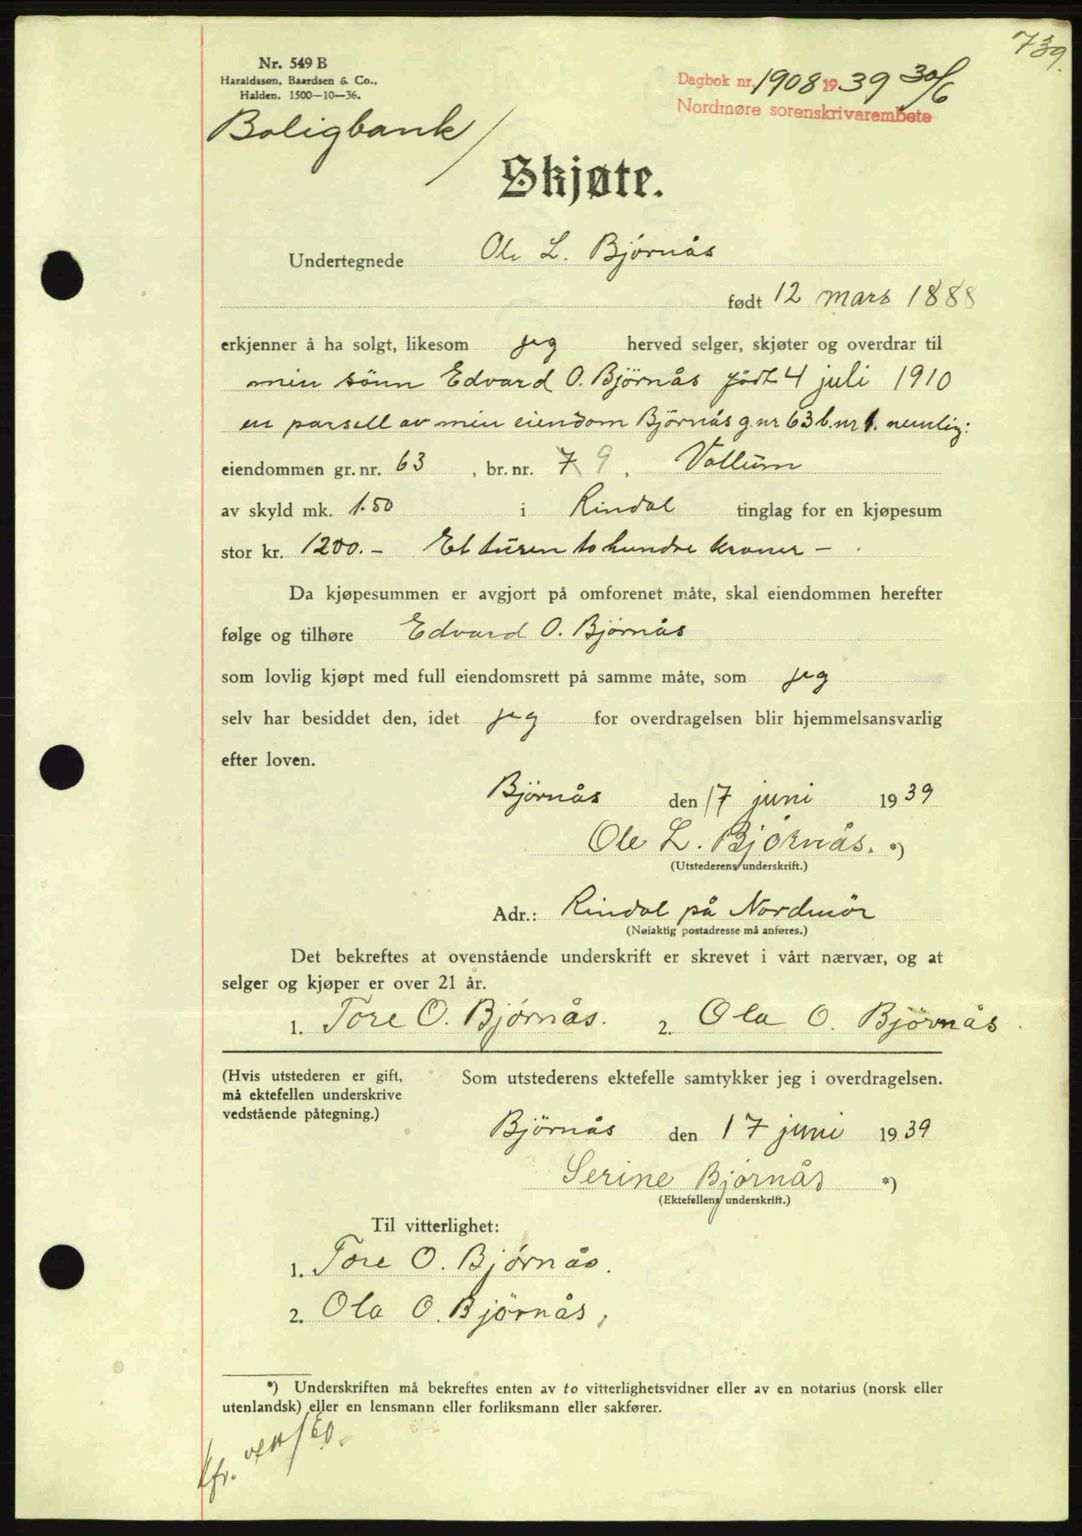 739.
Nr. 549 B
Haraldssøn, Baardsen & Co.,
Halden. 1500—10—36.
Dagbok nr. 1908 1939 30/6
Nordmøre sorenskrivarembete
Boligbank
Skjøte.
Undertegnede Ole L. Bjørnås
født 12 mars 1888
erkjenner å ha solgt, likesom jeg herved selger, skjøter og overdrar til
min sønn Edvard O. Bjørnås født 4 juli 1910
en parsell av min eiendom Bjørnås g.nr 63 b.nr 1. nemlig:
eiendommen gr. nr. 63, br. nr. 7 9, Vollum
av skyld mk. 1.50 i Rindal tinglag for en kjøpesum
stor kr. 1200.- Et tusen to hundre kroner — .
Da kjøpesummen er avgjort på omforenet måte, skal eiendommen herefter
følge og tilhøre Edvard O. Bjørnås
som lovlig kjøpt med full eiendomsrett på samme måte, som jeg
selv har besiddet den, idet jeg for overdragelsen blir hjemmelsansvarlig
efter loven.
Bjørnås den 17 juni 1939
Ole L. Bjørnås. *)
(Utstederens underskrift.)
Adr.: Rindal på Nordmör
(Nøiaktig postadresse må anføres.)
Det bekreftes at ovenstående underskrift er skrevet i vårt nærvær, og at
selger og kjøper er over 21 år.
1. Tore O. Bjørnås. 2. Ola O. Björnås
(Hvis utstederen er gift, Som utstederens ektefelle samtykker jeg i overdragelsen.
må ektefellen underskrive
vedstående påtegning.)
Bjørnås den 17 juni 1939
Serine Bjørnås *)
(Ektefellens underskrift.)
Til vitterlighet:
1. Tore O. Bjørnås.
2. Ola O. Björnås,
*) Underskriften må bekreftes enten av to vitterlighetsvidner eller av en notarius (norsk eller
utenlandsk) eller en lensmann eller forliksmann eller sakfører.